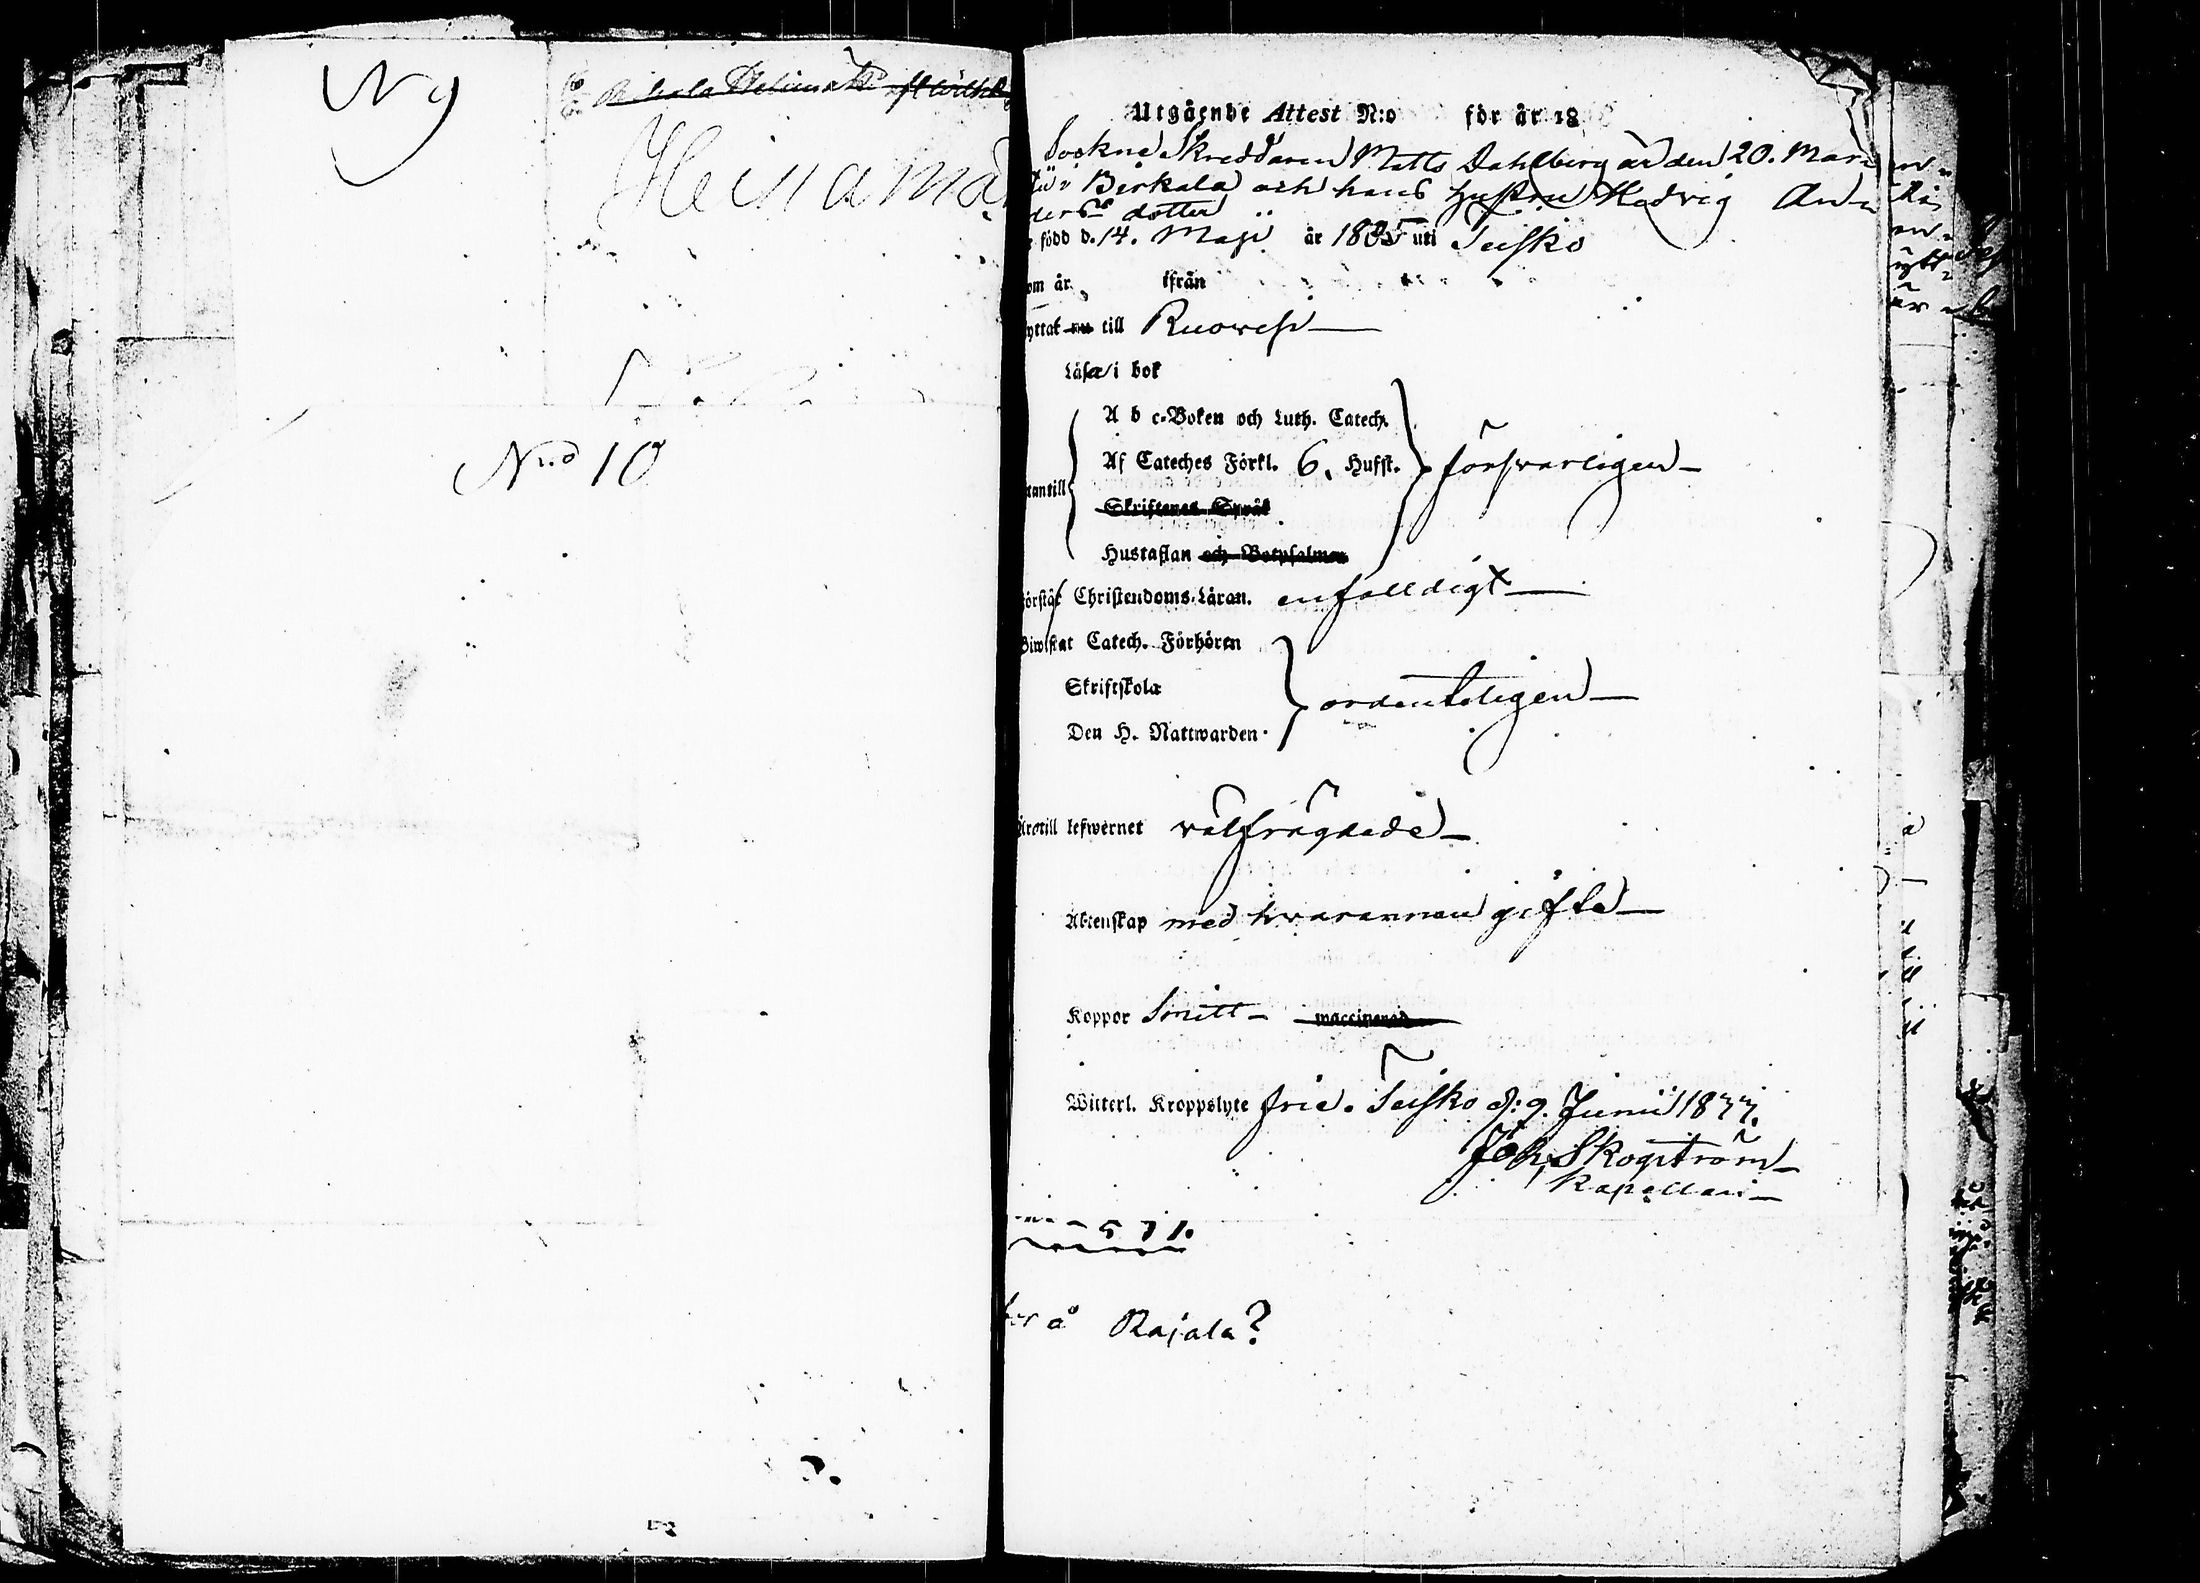 N 9
Heinamä
N:o 10
Utgående Attest N:o för år 18
Sockne Skreddaren Matts Dahlberg är den 20. Mars
Birkala och hans hustru Hedvig An
ders dotter
född d. 14. Maji år 1835 uti Teisko
om år ifrån
yttat nu till Ruowesi
Läsa i bok
A b c-Boken och Luth. Catech.
Af Cateches Förkl. 6. Hufst. försvarligen
utantill
Skriftenes Språk
Hustaflan och Botpsalmen
Förstå Christendoms-Läran. enfalldigt
Biwistat Catech. Förhören
Skriftskola
ordenteligen
Den H. Nattwarden
Äro till lefwernet välfrägdade
Äktenskap med hvarannan gifte
Koppor Smitt waccinerad
Witterl. Kroppslyte frie. Teisko d: 9. Junii 1877.
Joh. Skogström
Kapellan
571.
å Rajala?